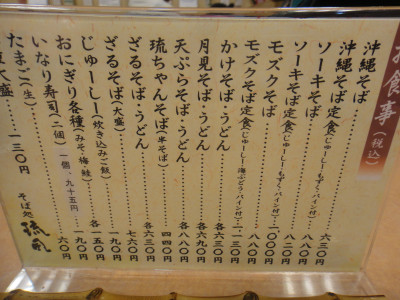 お食事(税込)
沖縄そば……六三〇円
沖縄そば定食(じゅーしー・もずく・パイン付)…八八〇円
ソーキそば……八二〇円
ソーキそば定食(じゅーしー・もずく・パイン付)…一〇〇〇円
モズクそば……八八〇円
モズクそば定食(じゅーしー・海ぶどう・パイン付)…一一三〇円
かけそば・うどん……各六三〇円
月見そば・うどん……各六九〇円
天ぷらそば・うどん……各八八〇円
琉ちゃんそば(半そば)……四四〇円
ざるそば・うどん……各六三〇円
ざるそば(大盛)……七六〇円
じゅーしー(炊き込みご飯)……一九〇円
おにぎり各種(みそ、梅、鮭)……各一五〇円
いなり寿司(二個)一個、九十五円……一九〇円
たまご(生)……六〇円
大盛……一三〇円
そば処
琉風